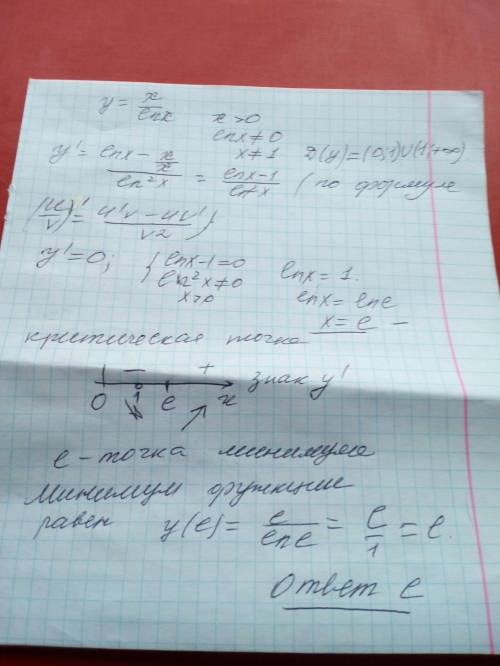 y = x/ln x   x > 0
ln x ≠ 0
x ≠ 1   D(y) = (0;1)∪(1;+∞)
y' = (ln x - x/x)/ln²x = (ln x - 1)/ln²x (по формуле
(u/v)' = (u'v - uv')/v2)
y' = 0; { ln x - 1 = 0   ln x = 1.
ln²x ≠ 0   ln x = ln e
x > 0   x = e –
критическая точка
– + знак y'
0 1 e x
e - точка минимума
Минимум функции
равен y(e) = e/ln e = e/1 = e.
Ответ e